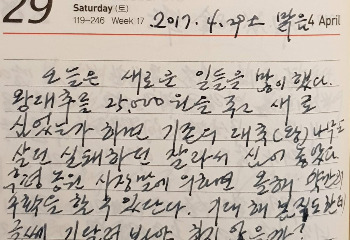 29 Saturday (토) 2017. 4. 29 토 맑음 April
119–246 Week 17
오늘은 새로운 일들을 많이 했다.
왕대추를 25,000원을 주고 새로
심었는가 하면 기존의 대추(왕)나무도
살던 실태하던 잘라서 심어 놓았다.
농원 사장말에 의하면 올해
수확을 할 수 있단다. 기대해
글쎄 기다려 봐야 하지 않을까?